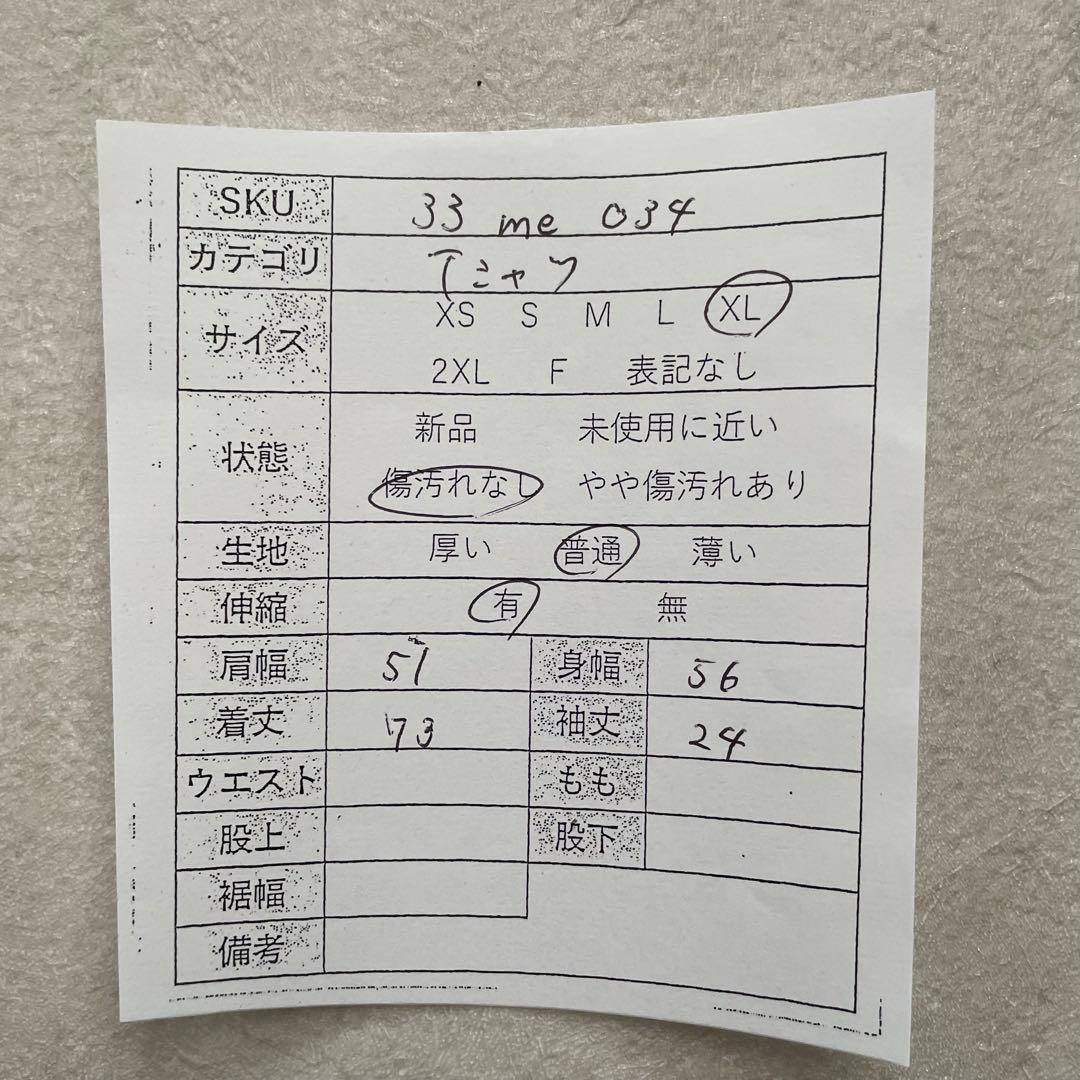 SKU 33 me 034
カテゴリ Tシャツ
サイズ XS S M L XL
2XL F 表記なし
状態 新品 未使用に近い
傷汚れなし やや傷汚れあり
生地 厚い 普通 薄い
伸縮 有 無
肩幅 51 身幅 56
着丈 73 袖丈 24
ウエスト もも
股上 股下
裾幅
備考